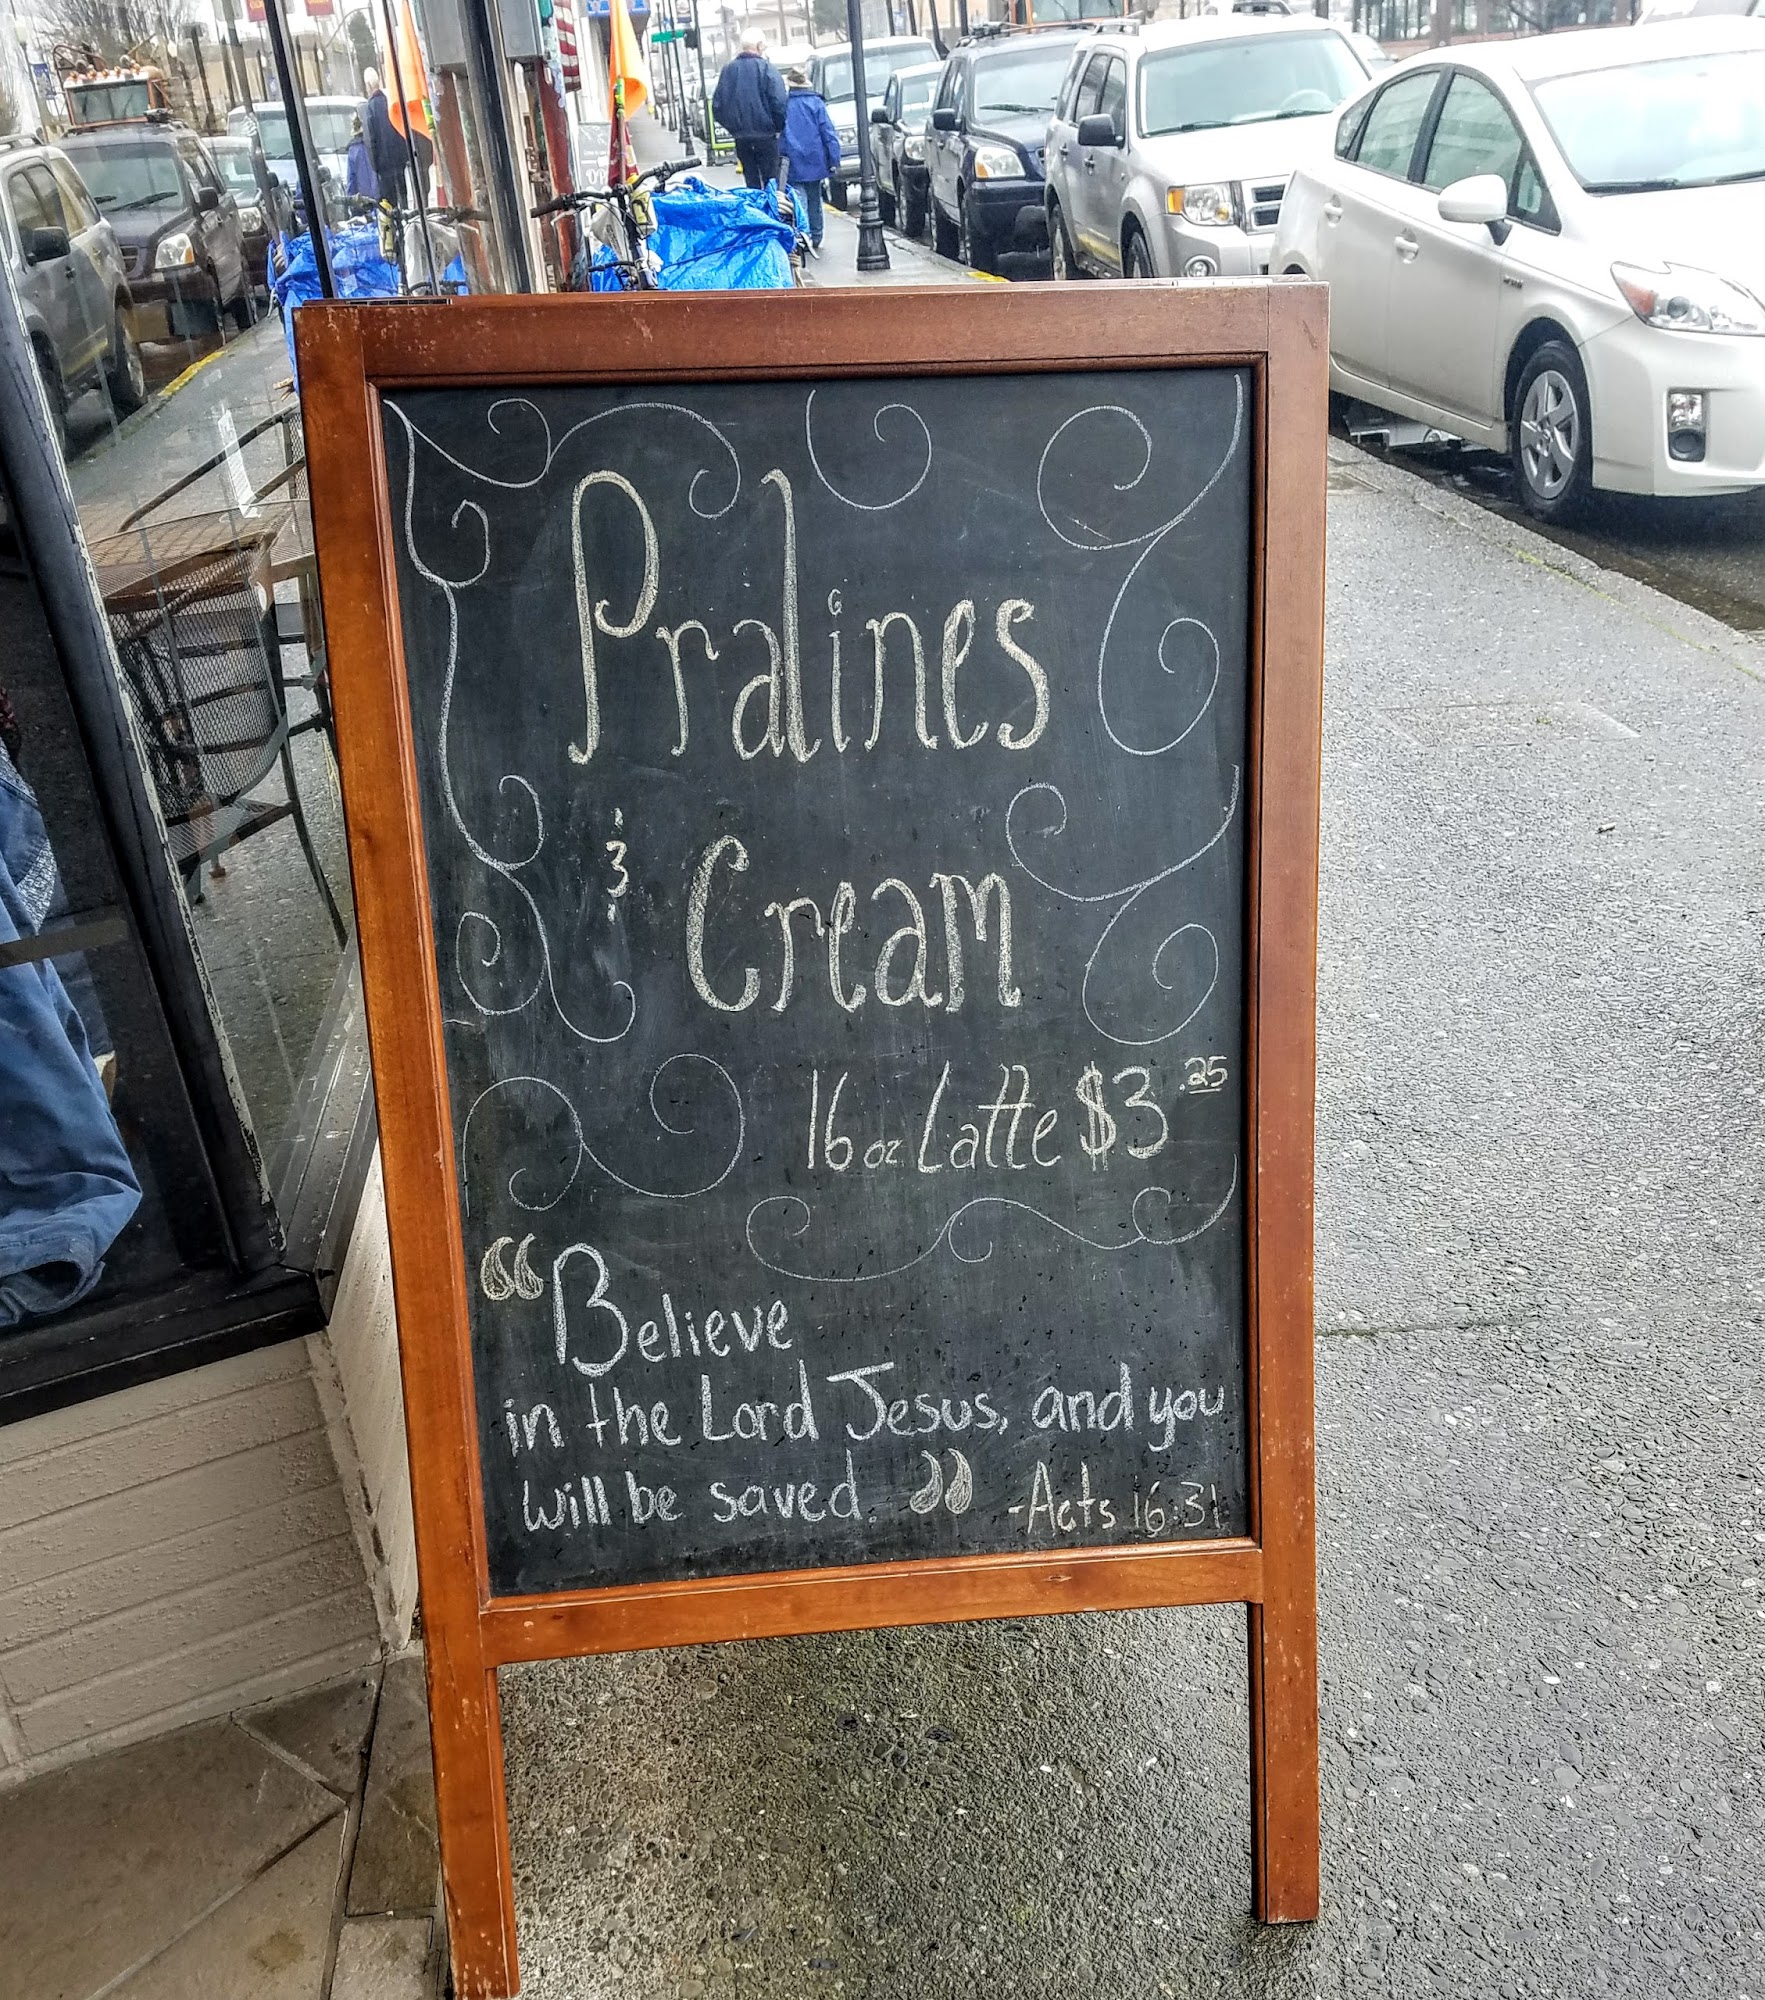 Pralines
& Cream
16 oz Latte $3.25
“Believe
in the Lord Jesus, and you
will be saved.” -Acts 16:31